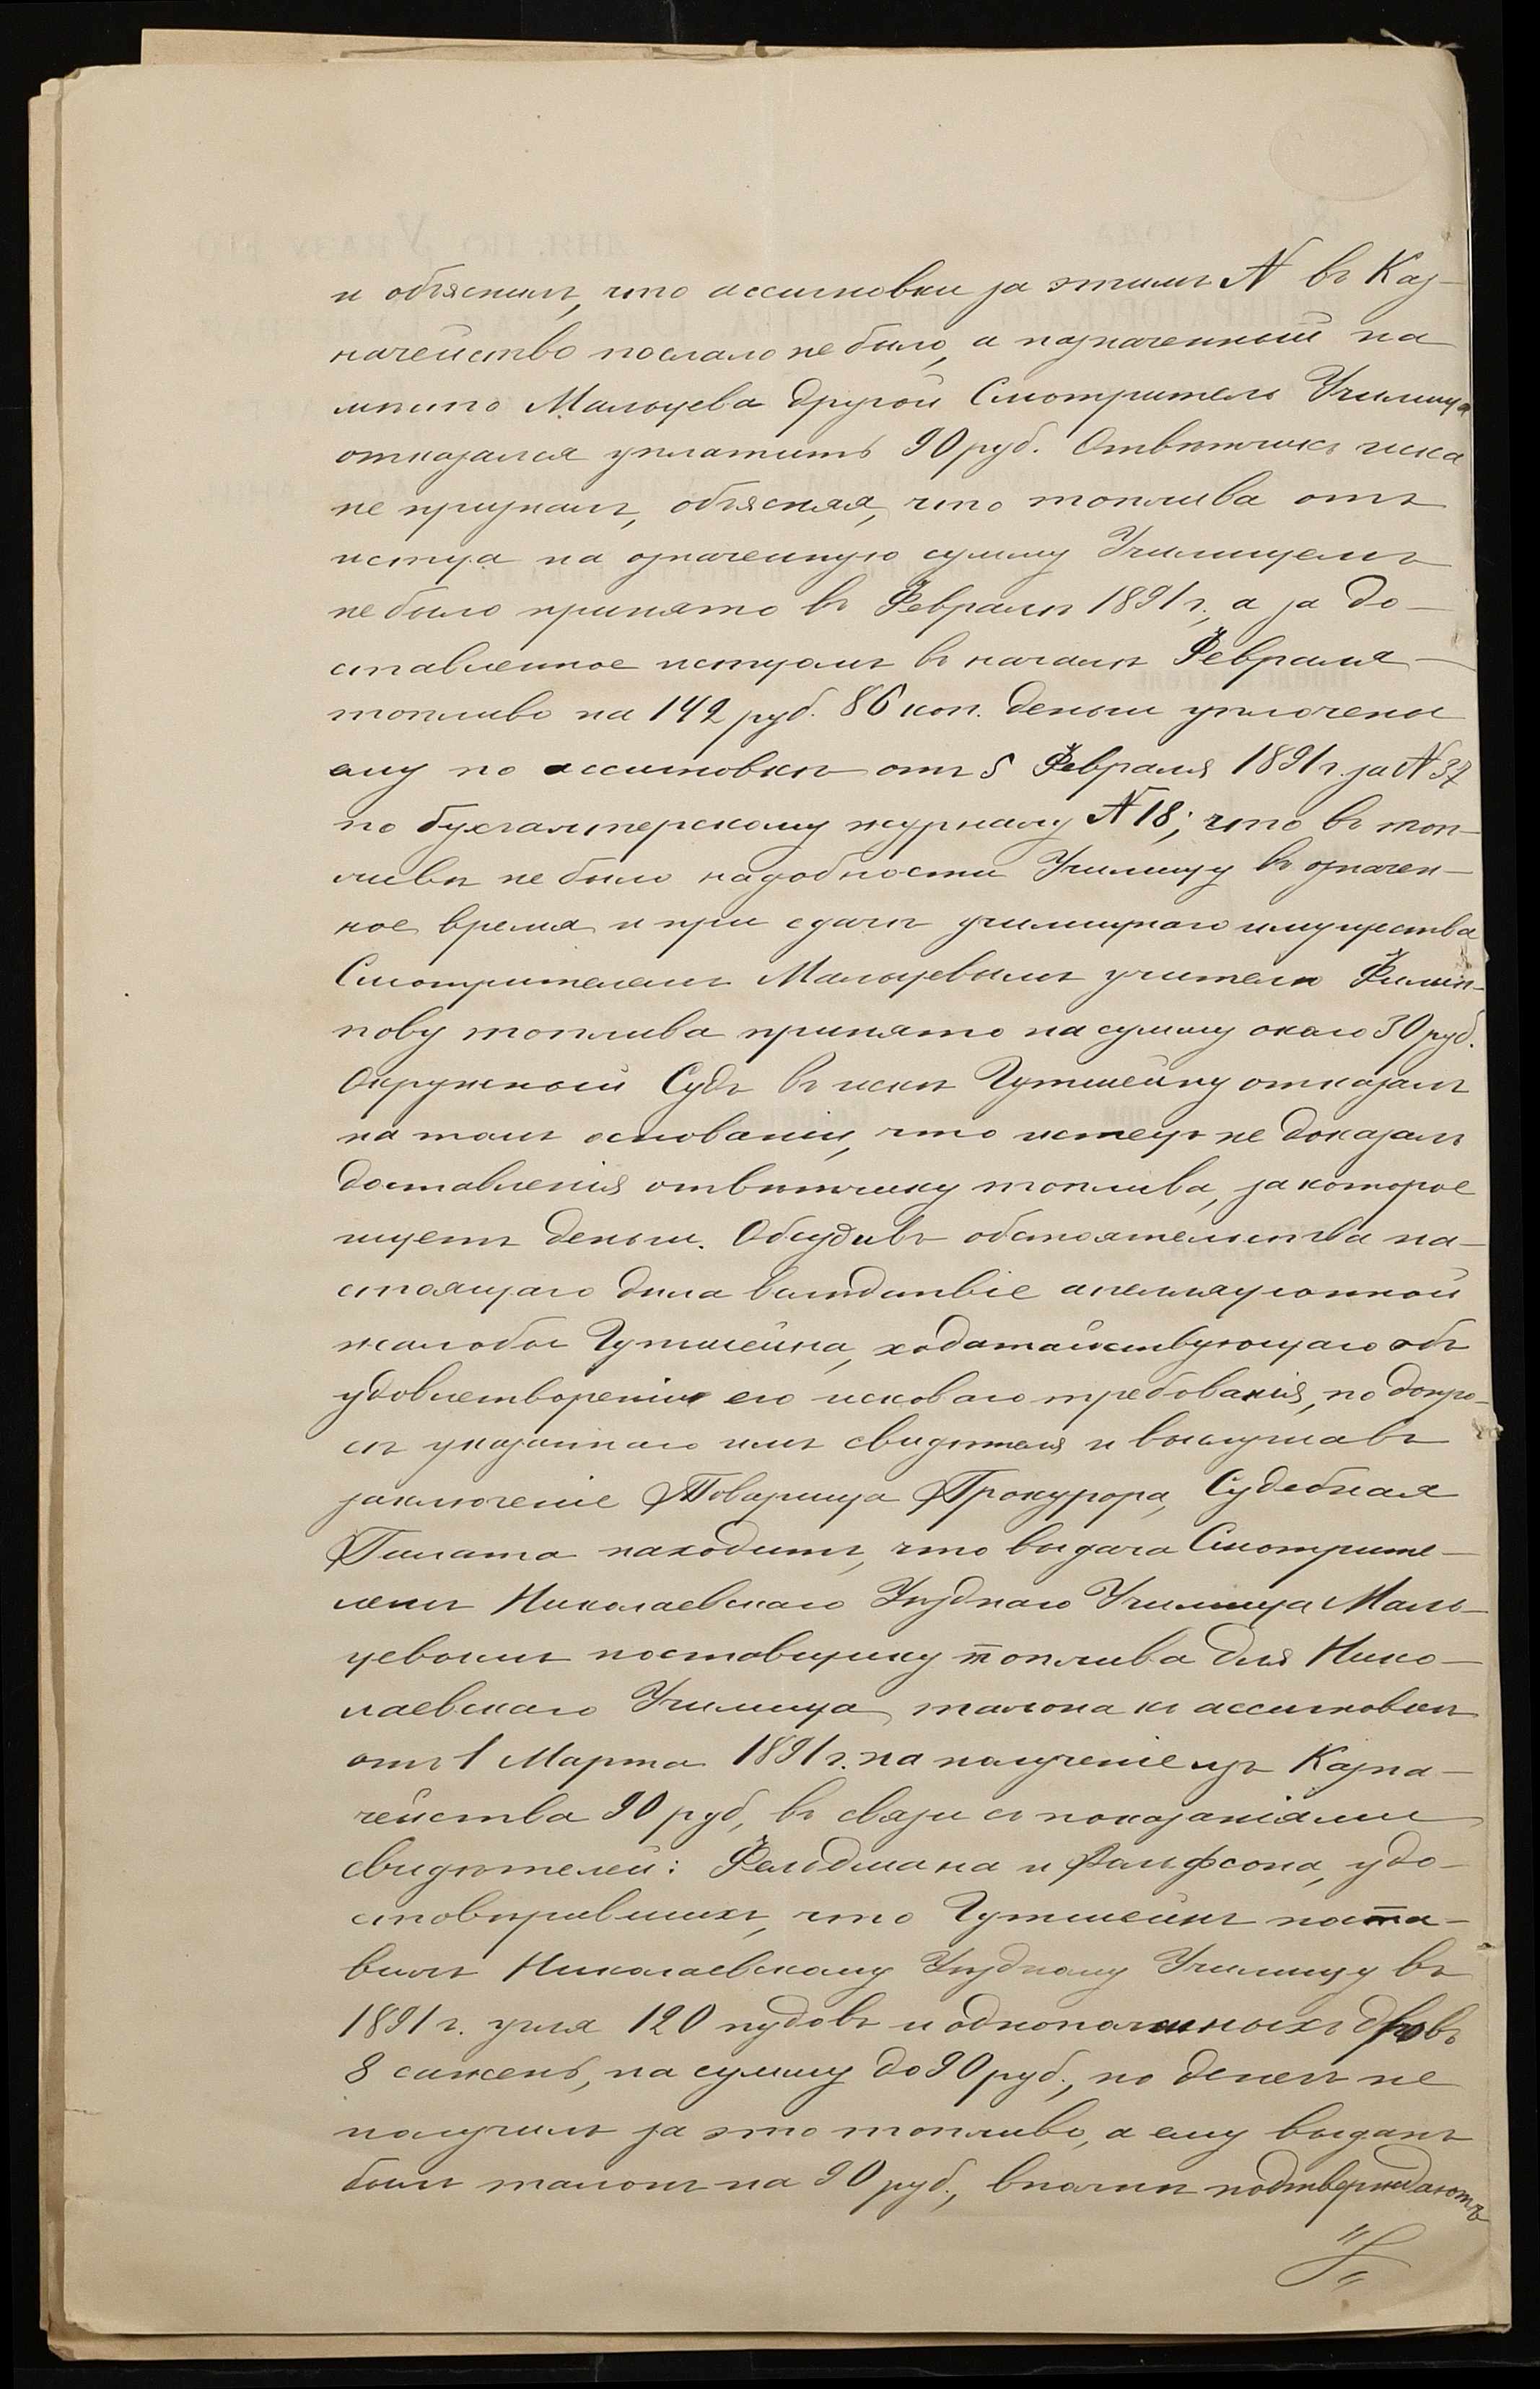 и объяснилъ, что ассигновки за этимъ № въ Каз-
начейство послано не было, а назначенный на
мѣсто Мальцева другой Смотритель Училища
отказался уплатить 90 руб. Отвѣтчикъ иска
не призналъ, объясняя, что топлива отъ
истца на означенную сумму Училищемъ
не было принято въ Февралѣ 1891 г., а за до-
ставленное истцомъ въ началѣ Февраля
топливо на 142 руб. 86 коп. деньги уплочены
ему по ассигновкѣ отъ 5 Февраля 1891 г. за № 37
по бухгалтерскому журналу № 18; что въ топ-
ливѣ не было надобности Училищу въ означен-
ное время и при сдачѣ училищнаго имущества
Смотрителемъ Мальцевымъ учителю Филип-
пову топлива принято на сумму около 30 руб.
Окружный Судъ въ искѣ Гутшейну отказалъ
на томъ основаніи, что истецъ не доказалъ
доставленія отвѣтчику топлива, за которое
ищетъ деньги. Обсудивъ обстоятельства на-
стоящаго дѣла вслѣдствіе апелляціонной
жалобы Гутшейна, ходатайствующаго объ
удовлетвореніи его исковаго требованія, по допро-
сѣ указаннаго имъ свидѣтеля и выслушавъ
заключеніе Товарища Прокурора, Судебная
Палата находитъ, что выдача Смотрите-
лемъ Николаевскаго Уѣзднаго Училища Маль-
цевымъ поставщику топлива для Нико-
лаевскаго Училища талона къ ассигновкѣ
отъ 1 Марта 1891 г. на полученіе изъ Казна-
чейства 90 руб, въ связи съ показаніями
свидѣтелей: Фельдмана и Вольфсона, удо-
стовѣрившихъ, что Гутшейнъ поста-
вилъ Николаевскому Уѣздному Училищу въ
1891 г. угля 120 пудовъ и однополѣнныхъ дровъ
8 сажень, на сумму до 90 руб., но денегъ не
получилъ за это топливо, а ему выданъ
былъ талонъ на 90 руб., вполнѣ подтверждаютъ